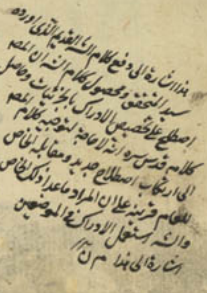 هذا اشارة الى دفع كلام الشا القديم الذى اورده
سيد المحقق ومحصول كلام الشه ان المصه
اصطلح على تخصيص الادراك بالجزئيات وحاصل
كلام قدس سره انه لا حاجة لتوجيه كلام المصه
الى ارتكاب اصطلاح جديد ومقابلة الخاص
للعام قرينة على ان المراد ما عدا ذلك الخاص
وانه استعمل الادراك فى الموضعين
اشارة الى هذا م ن